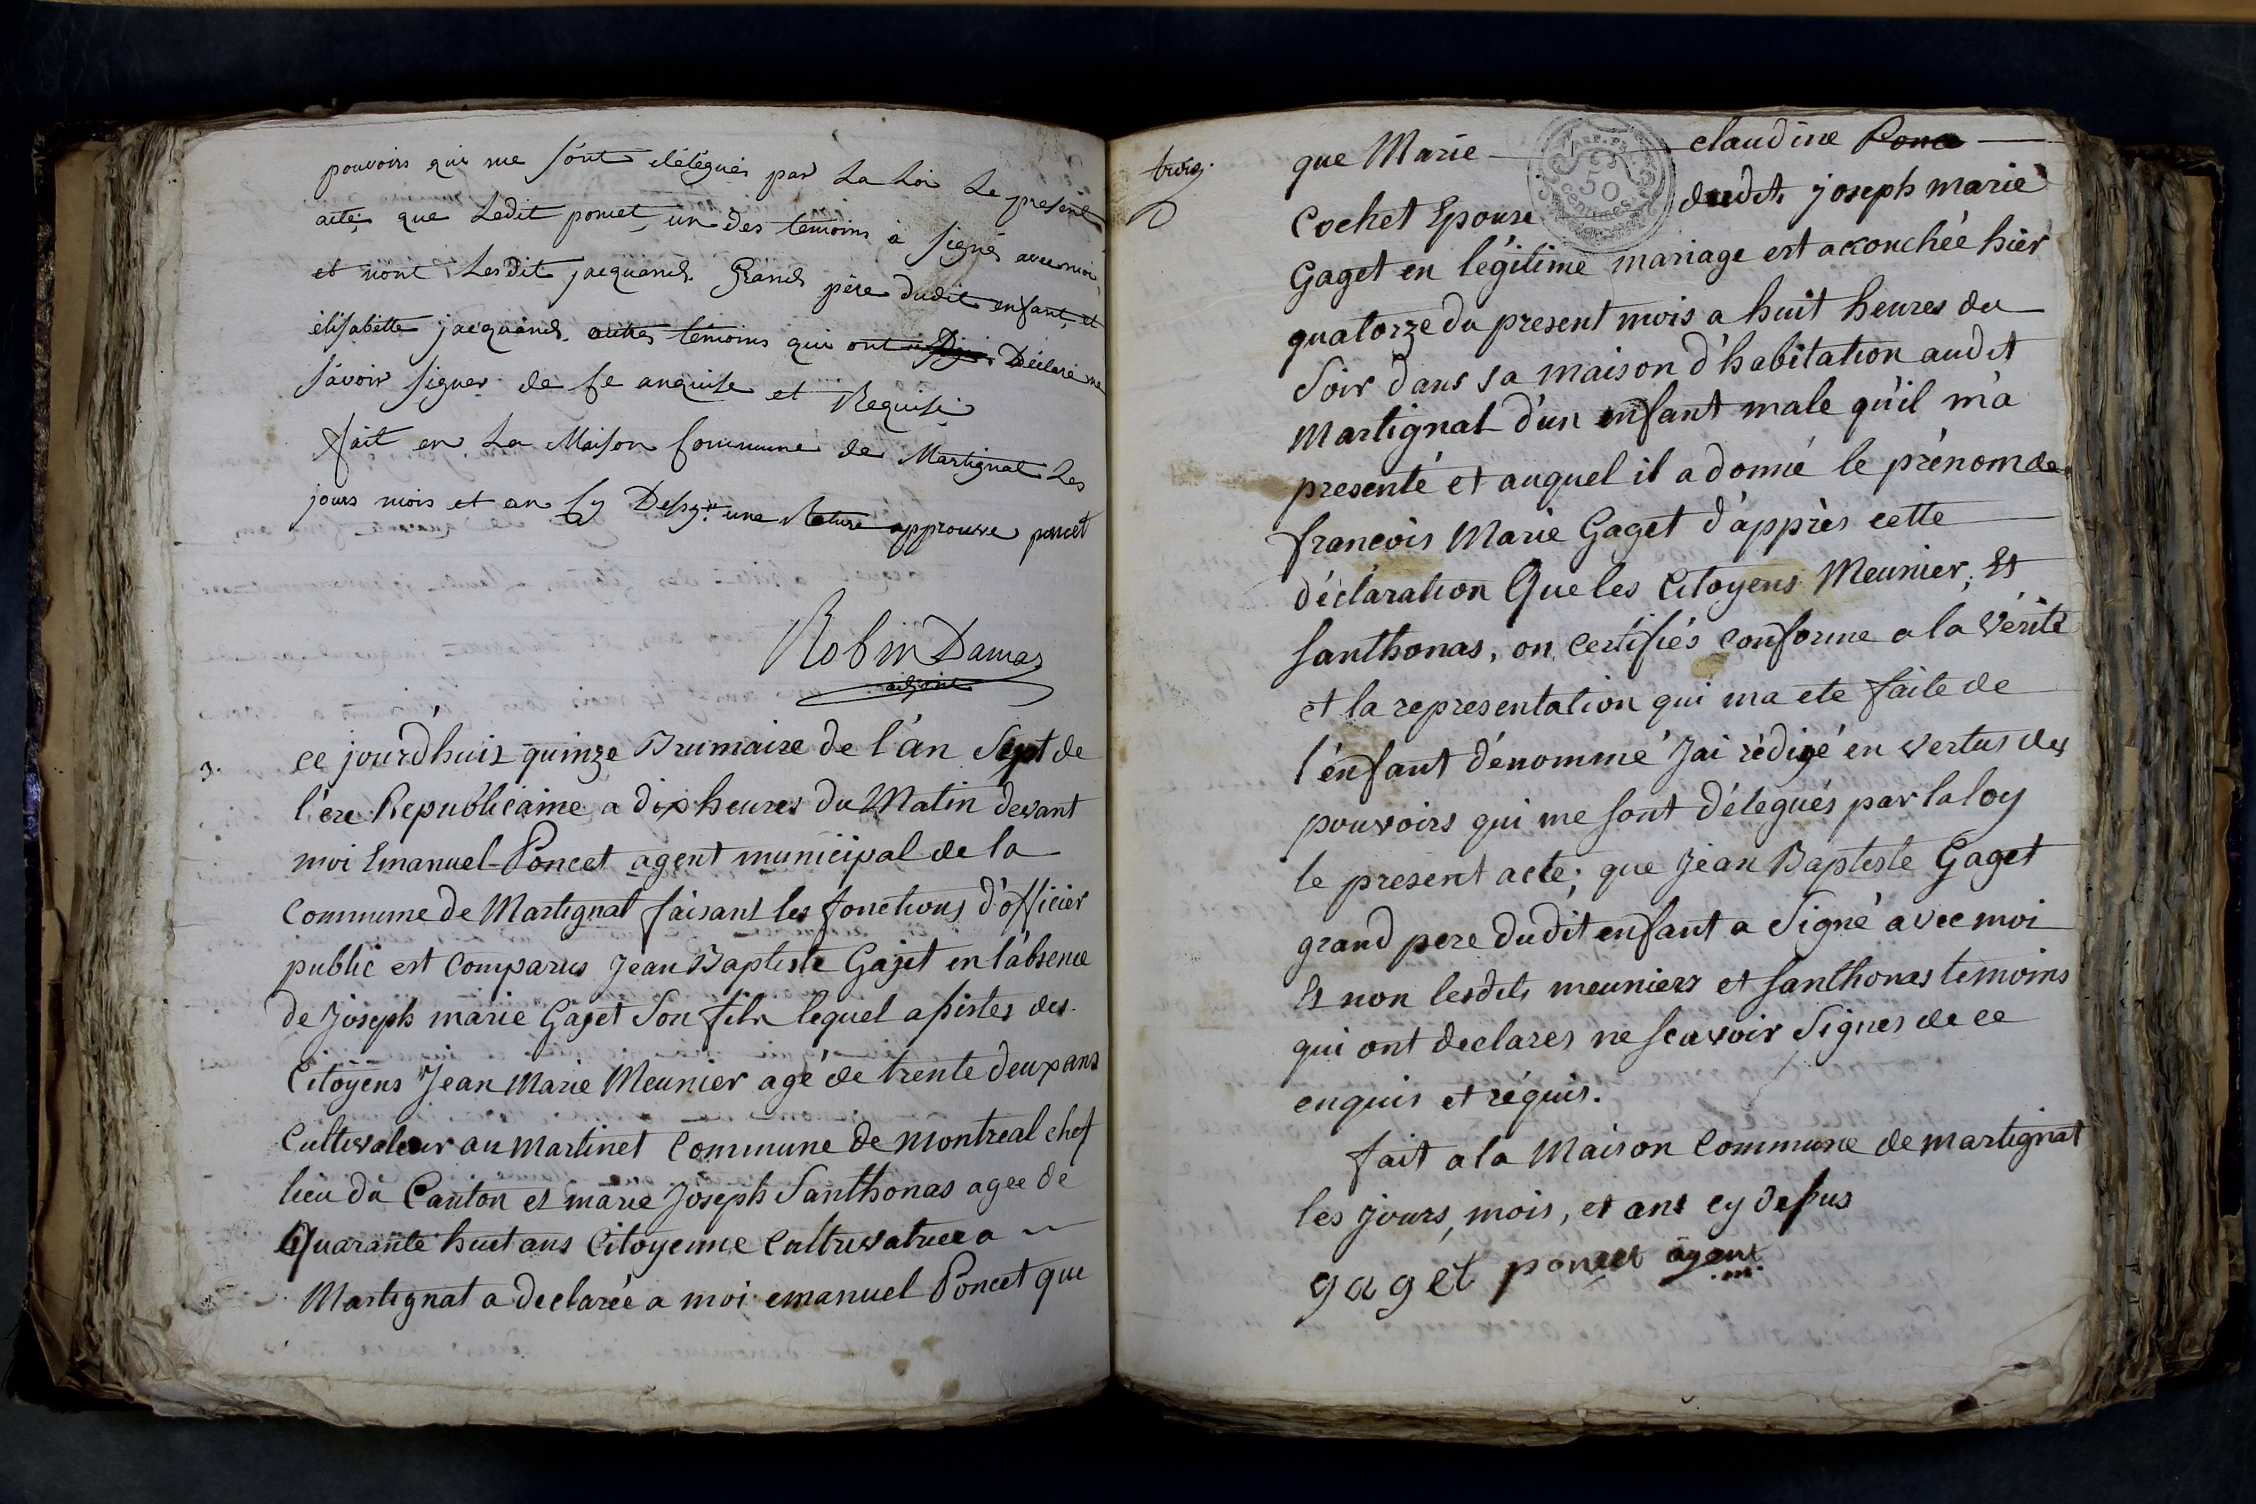 pouvoirs qui me sont délégués par La Loi Le present
acte; que Ledit poncet, un des temoins a signé avec moi,
et nont Lesdit jacquand Grand père dudit enfant, et
élisabette jacquand, autres témoins qui ont Déclaré ne
sávoir signer de se anquise et Requise
fait en La Maison Commune de Martignat Les
jours mois et an Cy Desst une Rature approuve poncet
Robin Damas
adjoint
3. ce jourd'huiz quinze Brumaire de l'án Sept de
l'ere Republicaine a dix heures du Matin devant
moi Emanuel Poncet agent municipal de la
Commune de Martignat faisant les fonctions d'officier
public est Comparus Jean Baptiste Gajet en l'absence
de Joseph marie Gajet Son fils lequel assistes des
Citoyens Jean Marie Meunier agé de trente deux ans
Cultivateur au Martinet Commune de Montreal chef
lieu du Canton et marie Joseph Santhonas agee de
Quarante huit ans Citoyenne Cultivatrice a
Martignat a declarée a moi emanuel Poncet que
trois
que Marie claudine Ponce
Cochet Epouse dudit joseph marie
Gaget en légitime mariage est acouchée hier
quatorze du present mois a huit heures du
Soir dans sa maison d'habitation audit
Martignat d'un enfant male qu'il m'a
presenté et auquel il a donné le prénom de
francois Marie Gaget d'apprès cette
déclaration Que les Citoyens Meunier, Et
Santhonas, on Certifiés Conforme a la Vérité
et la representation qui ma ete faite de
l'enfant dénommé Jai rédigé en vertus des
pouvoirs qui me sont délegués par la loy
le present acte; que Jean Baptiste Gaget
grand pere dudit enfant a Signé avec moi
Et non lesdits meuniers et Santhonas temoins
qui ont declares ne scavoir Signes de ce
enquis et réquis.
fait a la Maison Commune de Martignat
les jours, mois, et ans cy dessus
gaget poncet agent